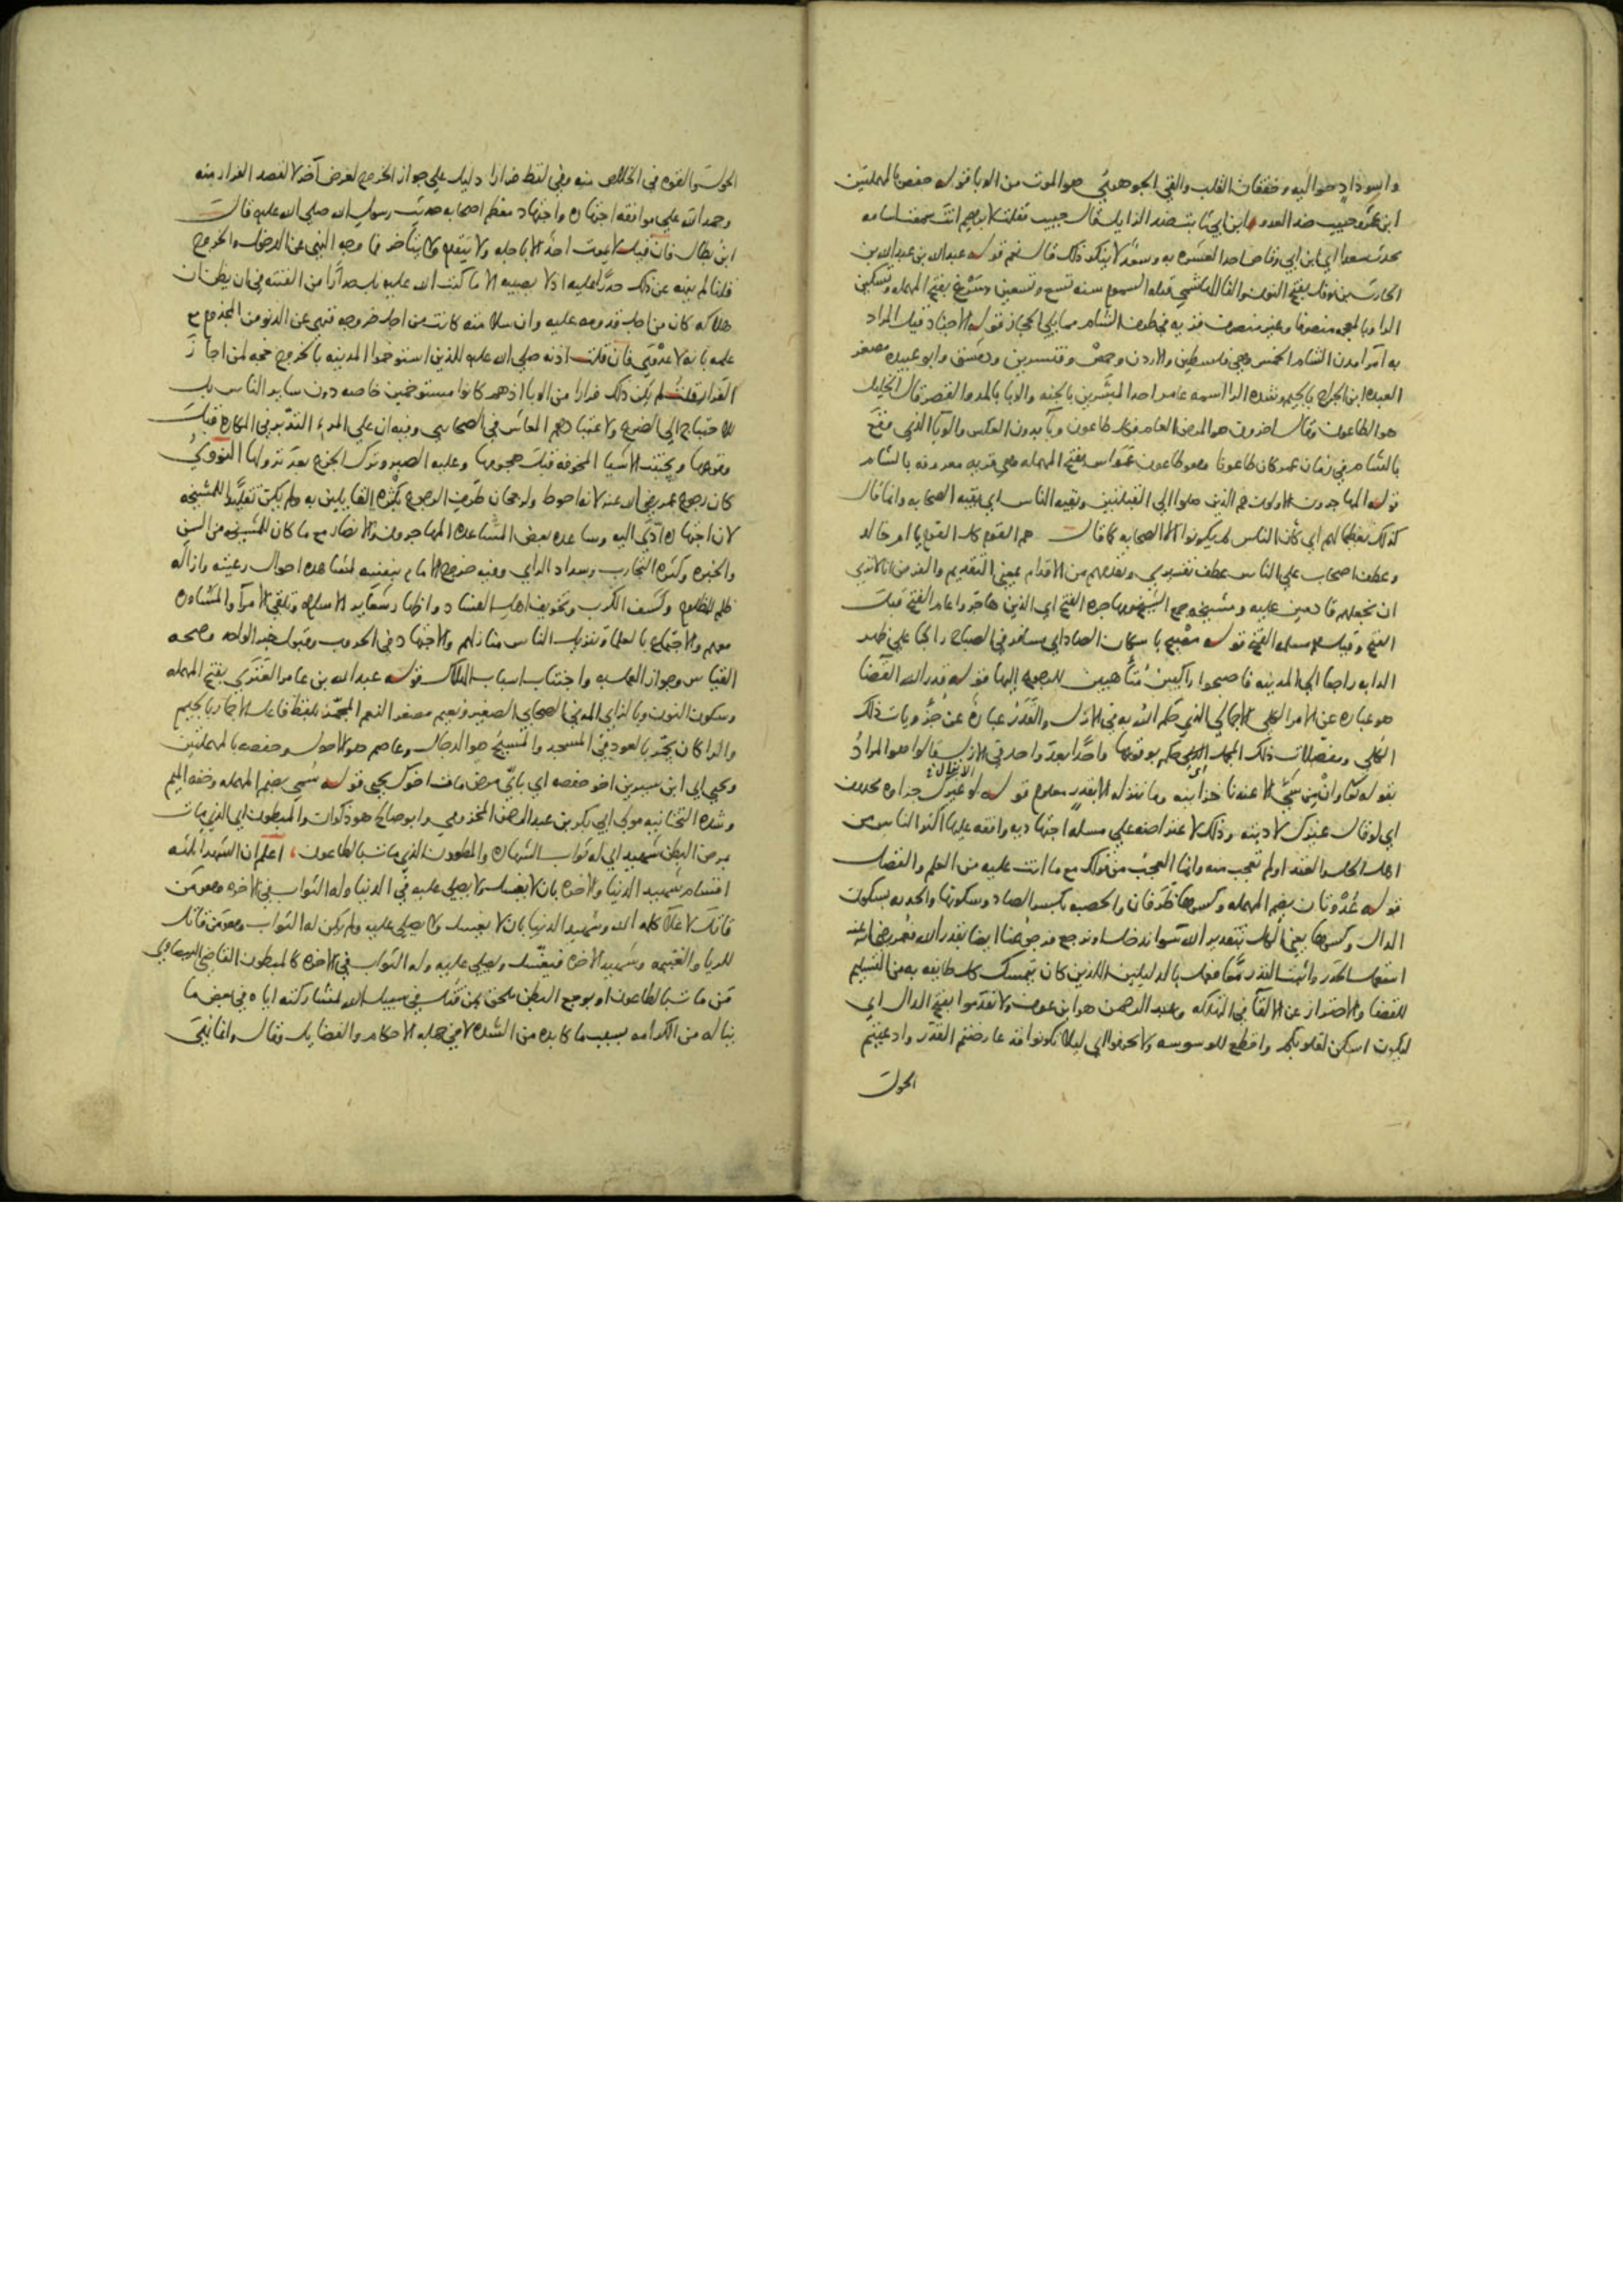 واسوداد حواليه وخفقان القلب والقي الجوهري هو الموت من الوبا قوله حفص بالمهملتين
ابن عمر وحبيب ضد العدو وابن ابي ثابت ضد الزايل فقال حبيب فقلت لابراهيم انت سمعت اسامه
يحدث سعدا اي ابن ابي وقاص احد العشره به وسعد لا ينكر ذلك قال نعم قوله عبد الله بن عبد الله بن
الحارث بن نوفل بفتح النون والفا الهاشمي قتله السموم سنه تسع وتسعين وسرغ بفتح المهمله وتسكين
الرا وبالمعجمه منصرفا وغير منصرف قريه في طرف الشام مما يلي الحجاز قوله الاجناد قيل المراد
به امرا مدن الشام الخمس وهي فلسطين والاردن وحمص وقنسرين ودمشق وابو عبيده مصغر
العبده ابن الجراح بالجيم وشده الرا اسمه عامر احد المبشرين بالجنه والوبا بالمد والقصر قال الخليل
هو الطاعون وقال اخرون هو المرض العام فكل طاعون وبآ بدون العكس والوبآ الذي وقع
بالشام في زمان عمر كان طاعونا وهو طاعون عمواس بفتح المهمله وهي قريه معروفه بالشام
قوله المهاجرون الاولون هم الذين صلوا الي القبلتين وبقيه الناس اي بقيه الصحابه وانما قال
كذلك تعظيما لهم اي كأن الناس لم يكونوا الا الصحابه كما قال هم القوم كل القوم يا ام خالد
وعطف اصحاب علي الناس عطف تفسيري وتقدمهم من الاقدام بمعني التقديم والغرض انا لا نري
ان تجعلهم قادمين عليه ومشيخه جمع الشيخ ومهاجره الفتح اي الذين هاجروا عام الفتح قبل
الفتح وقيل مسلمه الفتح قوله مصبح باسكان الصاد اي مسافر في الصباح راكبا علي ظهر
الدابه راجعا الي المدينه فاصبحوا راكبين متأهبين للرجوع اليها قوله قدر الله القضا
هو عباره عن الامر الكلي الاجمالي الذي حكم الله به في الازل والقدر عباره عن جزويات ذلك
الكلي ومفصلات ذلك المجمل التي حكم بوقوعها واحدا بعد واحد في الانزال قالوا هو المراد
بقوله تعالي وان من شي الا عندنا خزاينه وما ننزله الا بقدر معلوم قوله لو غيرك جزاوه محذوف
اي لو قال غيرك لادبته وذلك لاعتراضه علي مسله اجتهاديه وافقه عليها اكثر الناس من
اهل الحل والعقد او لم نتعجب منه وانما العجب من قولك مع ما انت عليه من العلم والفضل
قوله عدوتان بضم المهمله وكسرها طرفان والخصبه بكسر الصاد وسكونها والجدبه بسكون
الدال وكسرها يعني الكل بتقدير الله سوا ندخل او نرجع فرجوعنا ايضا بقدر الله فعمر رضي الله عنه
استعمل الحذر واثبت القدر معا فعمل بالدليلين اللذين كان يتمسك كل طايفه به من التسليم
للقضا والاحتراز عن الالقا في التهلكه وعبد الرحمن هو ابن عوف ولا تقدموا بفتح الدال اي
ليكون اسكن لقلوبكم واقطع للوسوسه ولا تخرجوا اي ليلا تكونوا قد عارضتم القدر وادعيتم
الحول
الحول والقوه في الخلاص منه وفي لفظ فرارا دليل علي جواز الخروج لغرض آخر لا لقصد الفرار منه
وحمد الله علي موافقه اجتهاده واجتهاد معظم اصحابه حديث رسول الله صلي الله عليه قال
ابن بطال فان قيل لا يموت احد الا باجله ولا يتقدم ولا يتأخر فما وجه النهي عن الدخول والخروج
قلنا لم ينه عن ذلك حذرا عليه اذ لا يصيبه الا ما كتب الله عليه بل حذرا من الفتنه في ان يظن ان
هلاكه كان من اجل قدومه عليه وان سلامته كانت من اجل خروجه فنهي عن الدنو من المجذوم مع
علمه بانه لا عدوي فان قلت اذنه صلي الله عليه للذين استوخموا المدينه بالخروج حجه لمن اجاز
الفرار قلت لم يكن ذلك فرارا من الوبا اذ هم كانوا مستوخمين خاصه دون ساير الناس بل
للاحتياج الي الضرع ولاعتيادهم المعاش في الصحاري وفيه ان علي المرء التوقي من المكاره قبل
وقوعها وتجنب الاشيا المخوفه قبل هجومها وعليه الصبر وترك الجزع بعد نزولها النووي
كان رجوع عمر رضي الله عنه لانه احوط ولرجحان طرف الرجوع بكثره القايلين به ولم يكن تقليدا للمشيخه
لان اجتهاده ادي اليه وساعده بعض المشاعده المهاجرون والانصار مع ما كان للمشيخه من السن
والخبره وكثره التجارب وسداد الراي وفيه خروج الامام بنفسه لمشاهده احوال رعيته وازاله
ظلم المظلوم وكشف الكرب وتخويف اهل الفساد واظهار شعاير الاسلام وتلقي الامرآ والمشاوره
معهم والاجتماع بالعلما وتنزيل الناس منازلهم والاجتهاد في الحروب وقبول خبر الواحد وصحه
القياس وجواز العمل به واجتناب اسباب الهلاك قوله عبد الله بن عامر العنزي بفتح المهمله
وسكون النون وبالزاي المدني الصحابي الصغير ونعيم مصغر النعم المجمر بلفظ فاعل الاجمار بالجيم
والرا كان يجمر بالعود في المسجد والمسيح هو الدجال وعاصم هو الاحول وحفصه بالمهملتين
ويحيي اي ابن سيرين اخو حفصه اي باي مرض مات اخوك يحيي قوله سمي بضم المهمله وخفه الميم
وشده التحتانيه مولي ابي بكر بن عبد الرحمن المخزومي وابو صالح هو ذكوان والمبطون اي الذي مات
بمرض البطن شهيد اي له ثواب الشهاده والمطعون الذي مات بالطاعون اعلم ان الشهدا ثلثه
اقسام شهيد الدنيا والاخره بان لا يغسل ولا يصلي عليه في الدنيا وله الثواب في الاخره وهو من
قاتل لاعلآ كلمه الله وشهيد الدنيا بان لا يغسل ولا يصلي عليه ولم يكن له الثواب وهو من قاتل
للريا والغنيمه وشهيد الاخره فيغسل ويصلي عليه وله الثواب في الاخره كالمبطون القاضي البيضاوي
من مات بالطاعون او بوجع البطن ملحق بمن قتل في سبيل الله لمشاركته اياه في بعض ما
يناله من الكرامه بسبب ما كابده من الشده لا في جمله الاحكام والفضايل وقال وانما يبقي